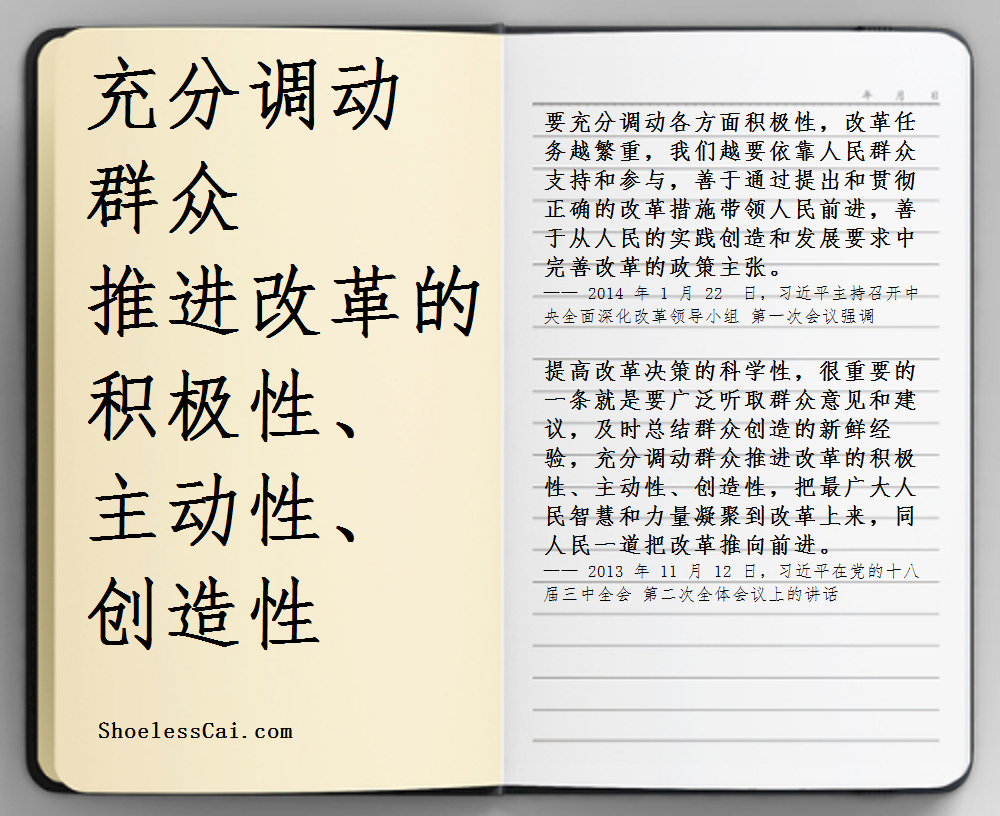 充分调动
群众
推进改革的
积极性、
主动性、
创造性
ShoelessCai.com
年 月 日
要充分调动各方面积极性，改革任
务越繁重，我们越要依靠人民群众
支持和参与，善于通过提出和贯彻
正确的改革措施带领人民前进，善
于从人民的实践创造和发展要求中
完善改革的政策主张。
—— 2014 年 1 月 22 日，习近平主持召开中
央全面深化改革领导小组 第一次会议强调
提高改革决策的科学性，很重要的
一条就是要广泛听取群众意见和建
议，及时总结群众创造的新鲜经
验，充分调动群众推进改革的积极
性、主动性、创造性，把最广大人
民智慧和力量凝聚到改革上来，同
人民一道把改革推向前进。
—— 2013 年 11 月 12 日，习近平在党的十八
届三中全会 第二次全体会议上的讲话